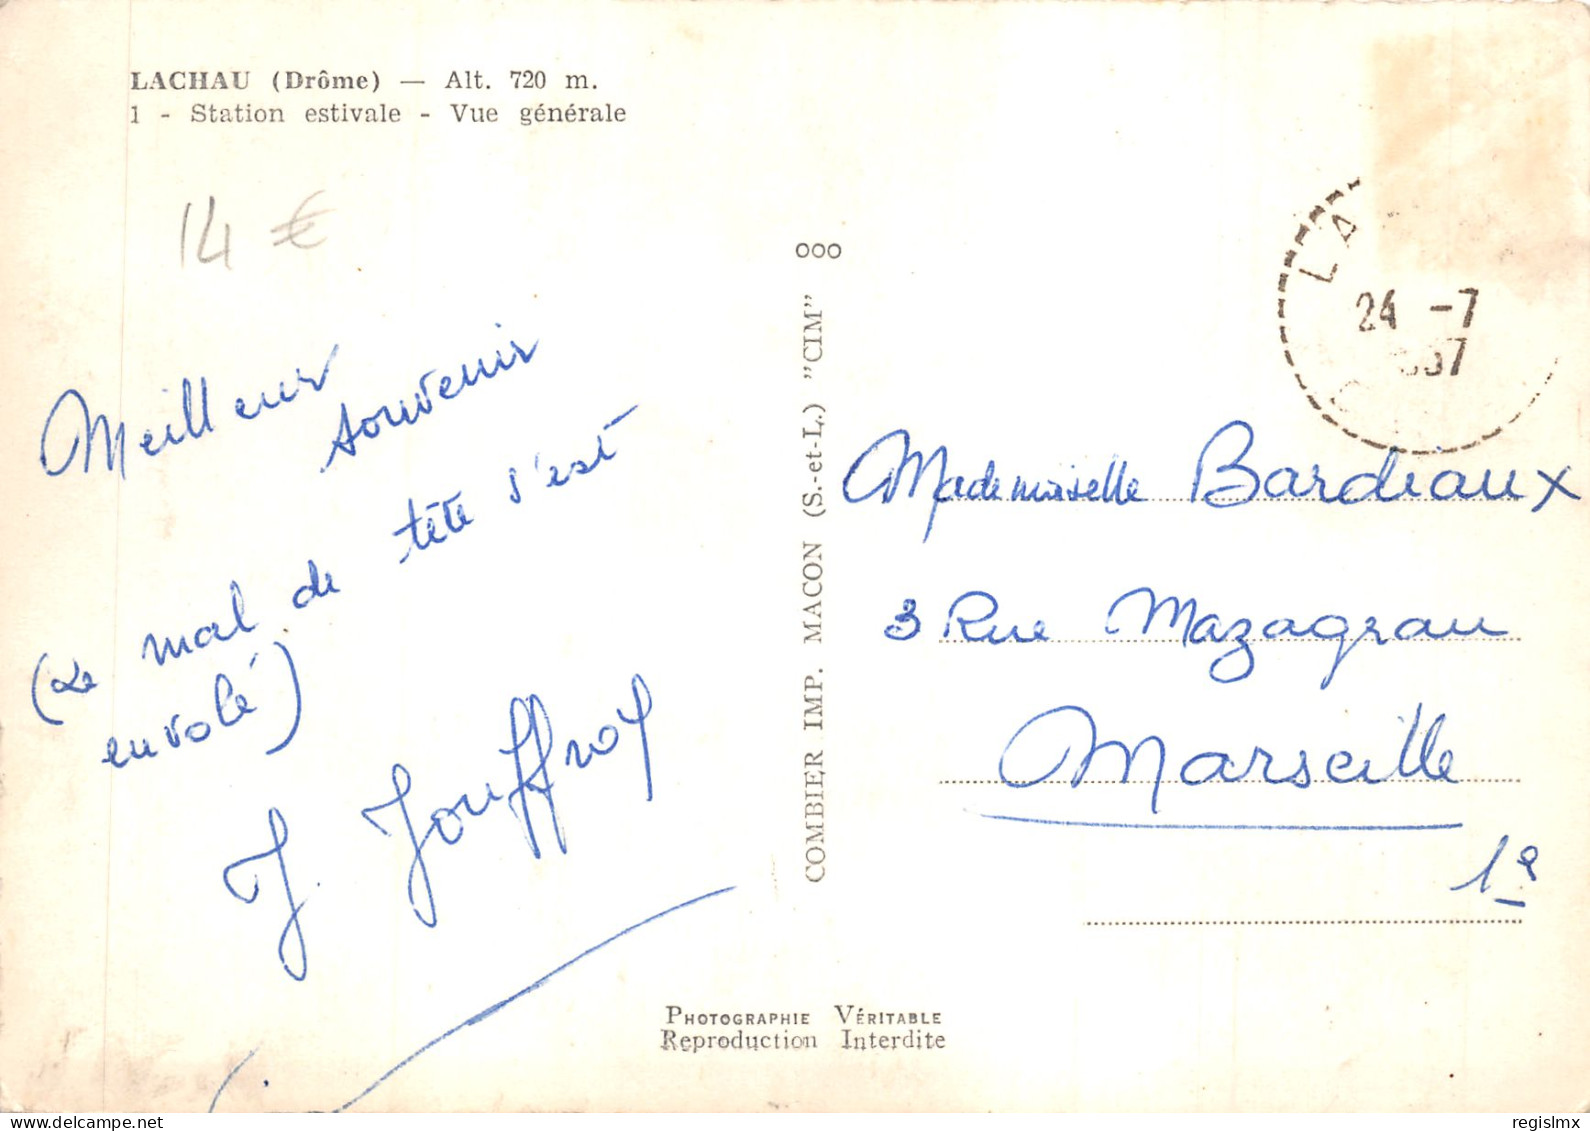 LACHAU (Drôme) — Alt. 720 m.
1 - Station estivale - Vue générale
14 €
Meilleur
souvenir
(Le mal de tête s'est
envolé)
J. Jouffroy
COMBIER IMP. MACON (S.-et-L.) "CIM"
ooo
LA
24 -7
57
Mademoiselle Bardeaux
3 Rue Mazagrau
Marseille
1e
PHOTOGRAPHIE VÉRITABLE
Reproduction Interdite
regislmx